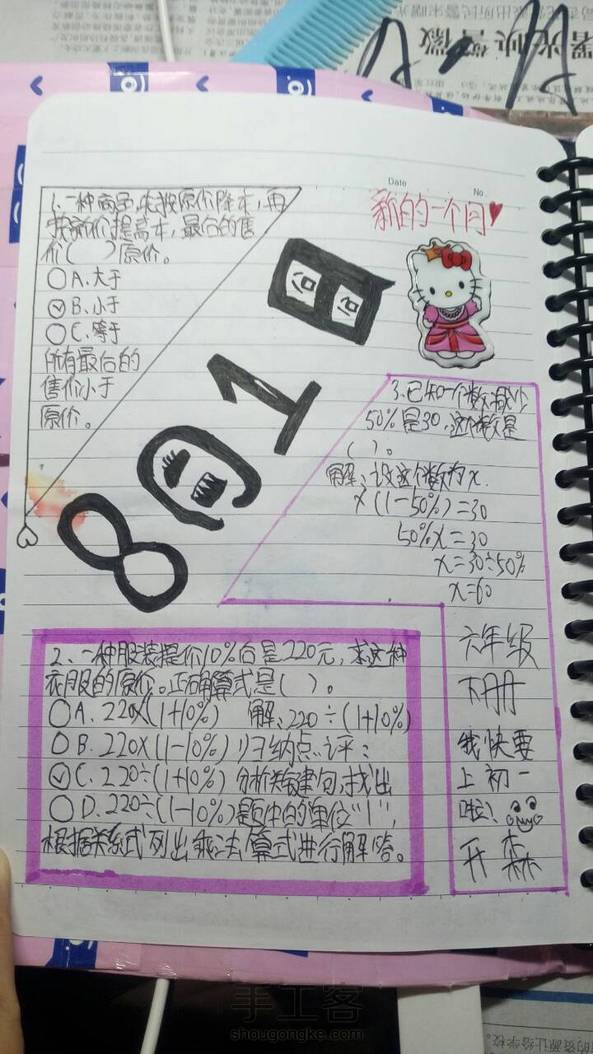 Date
No.
新的一个月
1.一种商品,先按原价降
再
按前价提高
最后的售
价( )原价。
A.大于
B.小于
C.等于
所有最后的
售价小于
原价。
801
3.已知一个数减少
50%是30,这个数是
( )。
解:设这个数为x.
x(1-50%)=30
50%x=30
x=30÷50%
x=60
2、一种服装提价10%后是220元,求这种
衣服的原价。正确算式是( )。
A.220×(1+10%) 解:220÷(1+10%)
B.220×(1-10%) 归纳点评:
C.220÷(1+10%) 分析关键句,找出
D.220÷(1-10%)是题中的单位"1",
根据关系式列出乘法算式进行解答。
六年级
下册
我快要
上初一
啦!
开森
手工客
shougongke.com